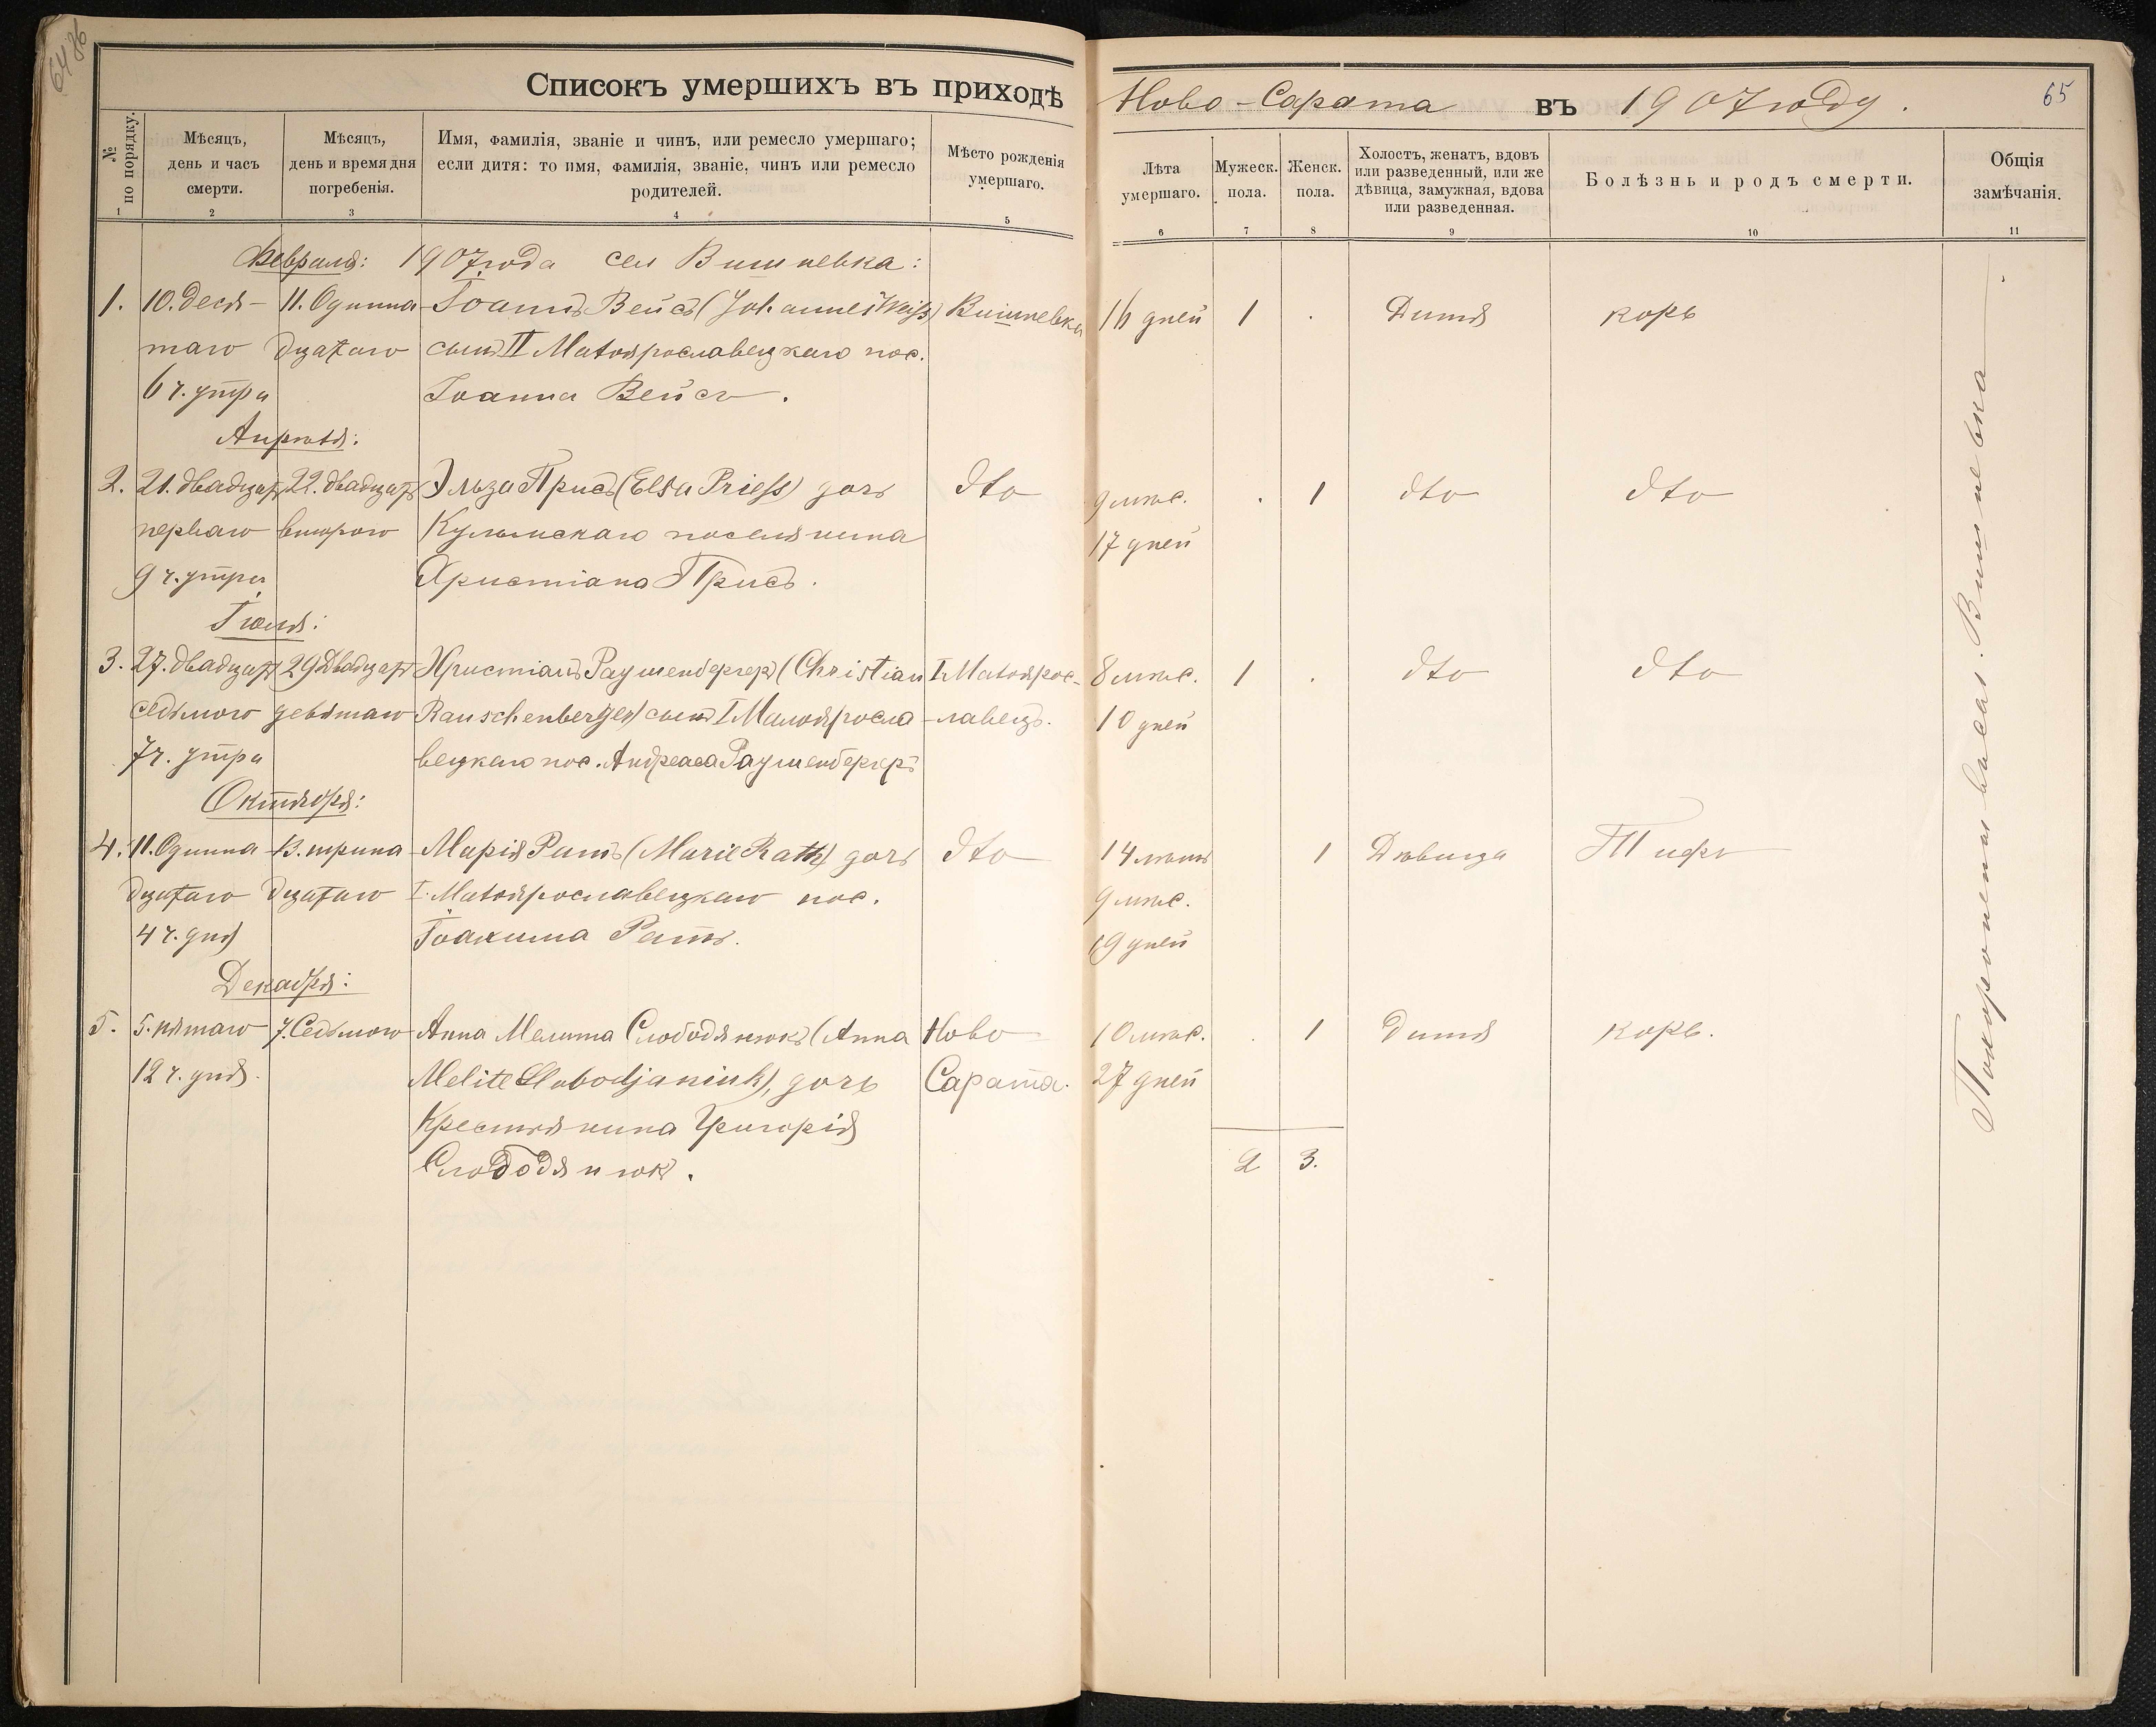 6486
Списокъ умершихъ въ приходѣ Ново-Сарата въ 1907 году.
65
№ по порядку.
Мѣсяцъ, день и часъ смерти.
Мѣсяцъ, день и время дня погребенія.
Имя, фамилія, званіе и чинъ, или ремесло умершаго; если дитя: то имя, фамилія, званіе, чинъ или ремесло родителей.
Мѣсто рожденія умершаго.
Лѣта умершаго.
Мужеск. пола.
Женск. пола.
Холостъ, женатъ, вдовъ или разведенный, или же дѣвица, замужная, вдова или разведенная.
Болѣзнь и родъ смерти.
Общія замѣчанія.
1 2 3 4 5 6 7 8 9 10 11
Февраля: 1907 года сел Вишневка:
1. 10. деся- 11. Одинна- Іоаннъ Вейсъ (Johannes Weiß) Вишневка 16 дней 1 . Дитя корь
таго дцатаго сынъ II Малоярославецкаго пос.
6 ч. утра Іоанна Вейсъ.
Апрѣля:
2. 21. двадцать 22. двадцать Эльза Присъ (Elsa Prieß) дочь dto 9 мѣс. . 1 dto dto
перваго второго Кульмскаго поселянина 17 дней
9 ч. утра Христіана Присъ.
Іюля:
3. 27. двадцать 29 двадцать Христіанъ Раушенбергеръ (Christian I Малоярос- 8 мѣс. 1 . dto dto
седьмого девятаго Rauschenberger) сынъ I Малояросла- -лавецъ. 10 дней
7 ч. утра вецкаго пос. Андреаса Раушенбергеръ
Октября:
4. 11. Одинна- 13. трина- Марія Ратъ (Marie Rath) дочь dto 14 лѣтъ 1 Дѣвица Тифъ
дцатаго дцатаго I. Малоярославецкаго пос. 9 мѣс.
4 ч. дня Іоакима Ратъ. 19 дней
Декабря:
5. 5. пятаго 7. Седьмого Анна Мелита Слободянюкъ (Anna Ново 10 мѣс. . 1 Дитя корь.
12 ч. дня. Melite Slobodjaniuk), дочь Сарата. 27 дней
Крестьянина Григорія
Слободянюк.
2 3.
Похоронены въ сел. Вишневка